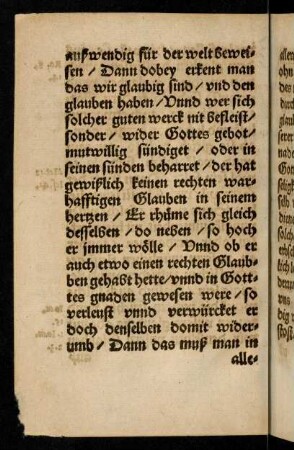 außwendig für der welt bewei-
sen / Dann dobey erkent man
das wir glaubig sind / vnd den
glauben haben / Vnnd wer sich
solcher guten werck nit befleist /
sonder / wider Gottes gebot
mutwillig sündiget / oder in
seinen sünden beharret / der hat
gewißlich keinen rechten war-
hafftigen Glauben in seinem
hertzen / Er rhüme sich gleich
desselben / do neben / so hoch
er jmmer wölle / Vnnd ob er
auch etwo einen rechten Glaub-
ben gehabt hette / vnnd in Gott-
tes gnaden gewesen were / so
verleust vnnd verwürcket er
doch denselben domit wider-
umb / Dann das muß man in
alle-